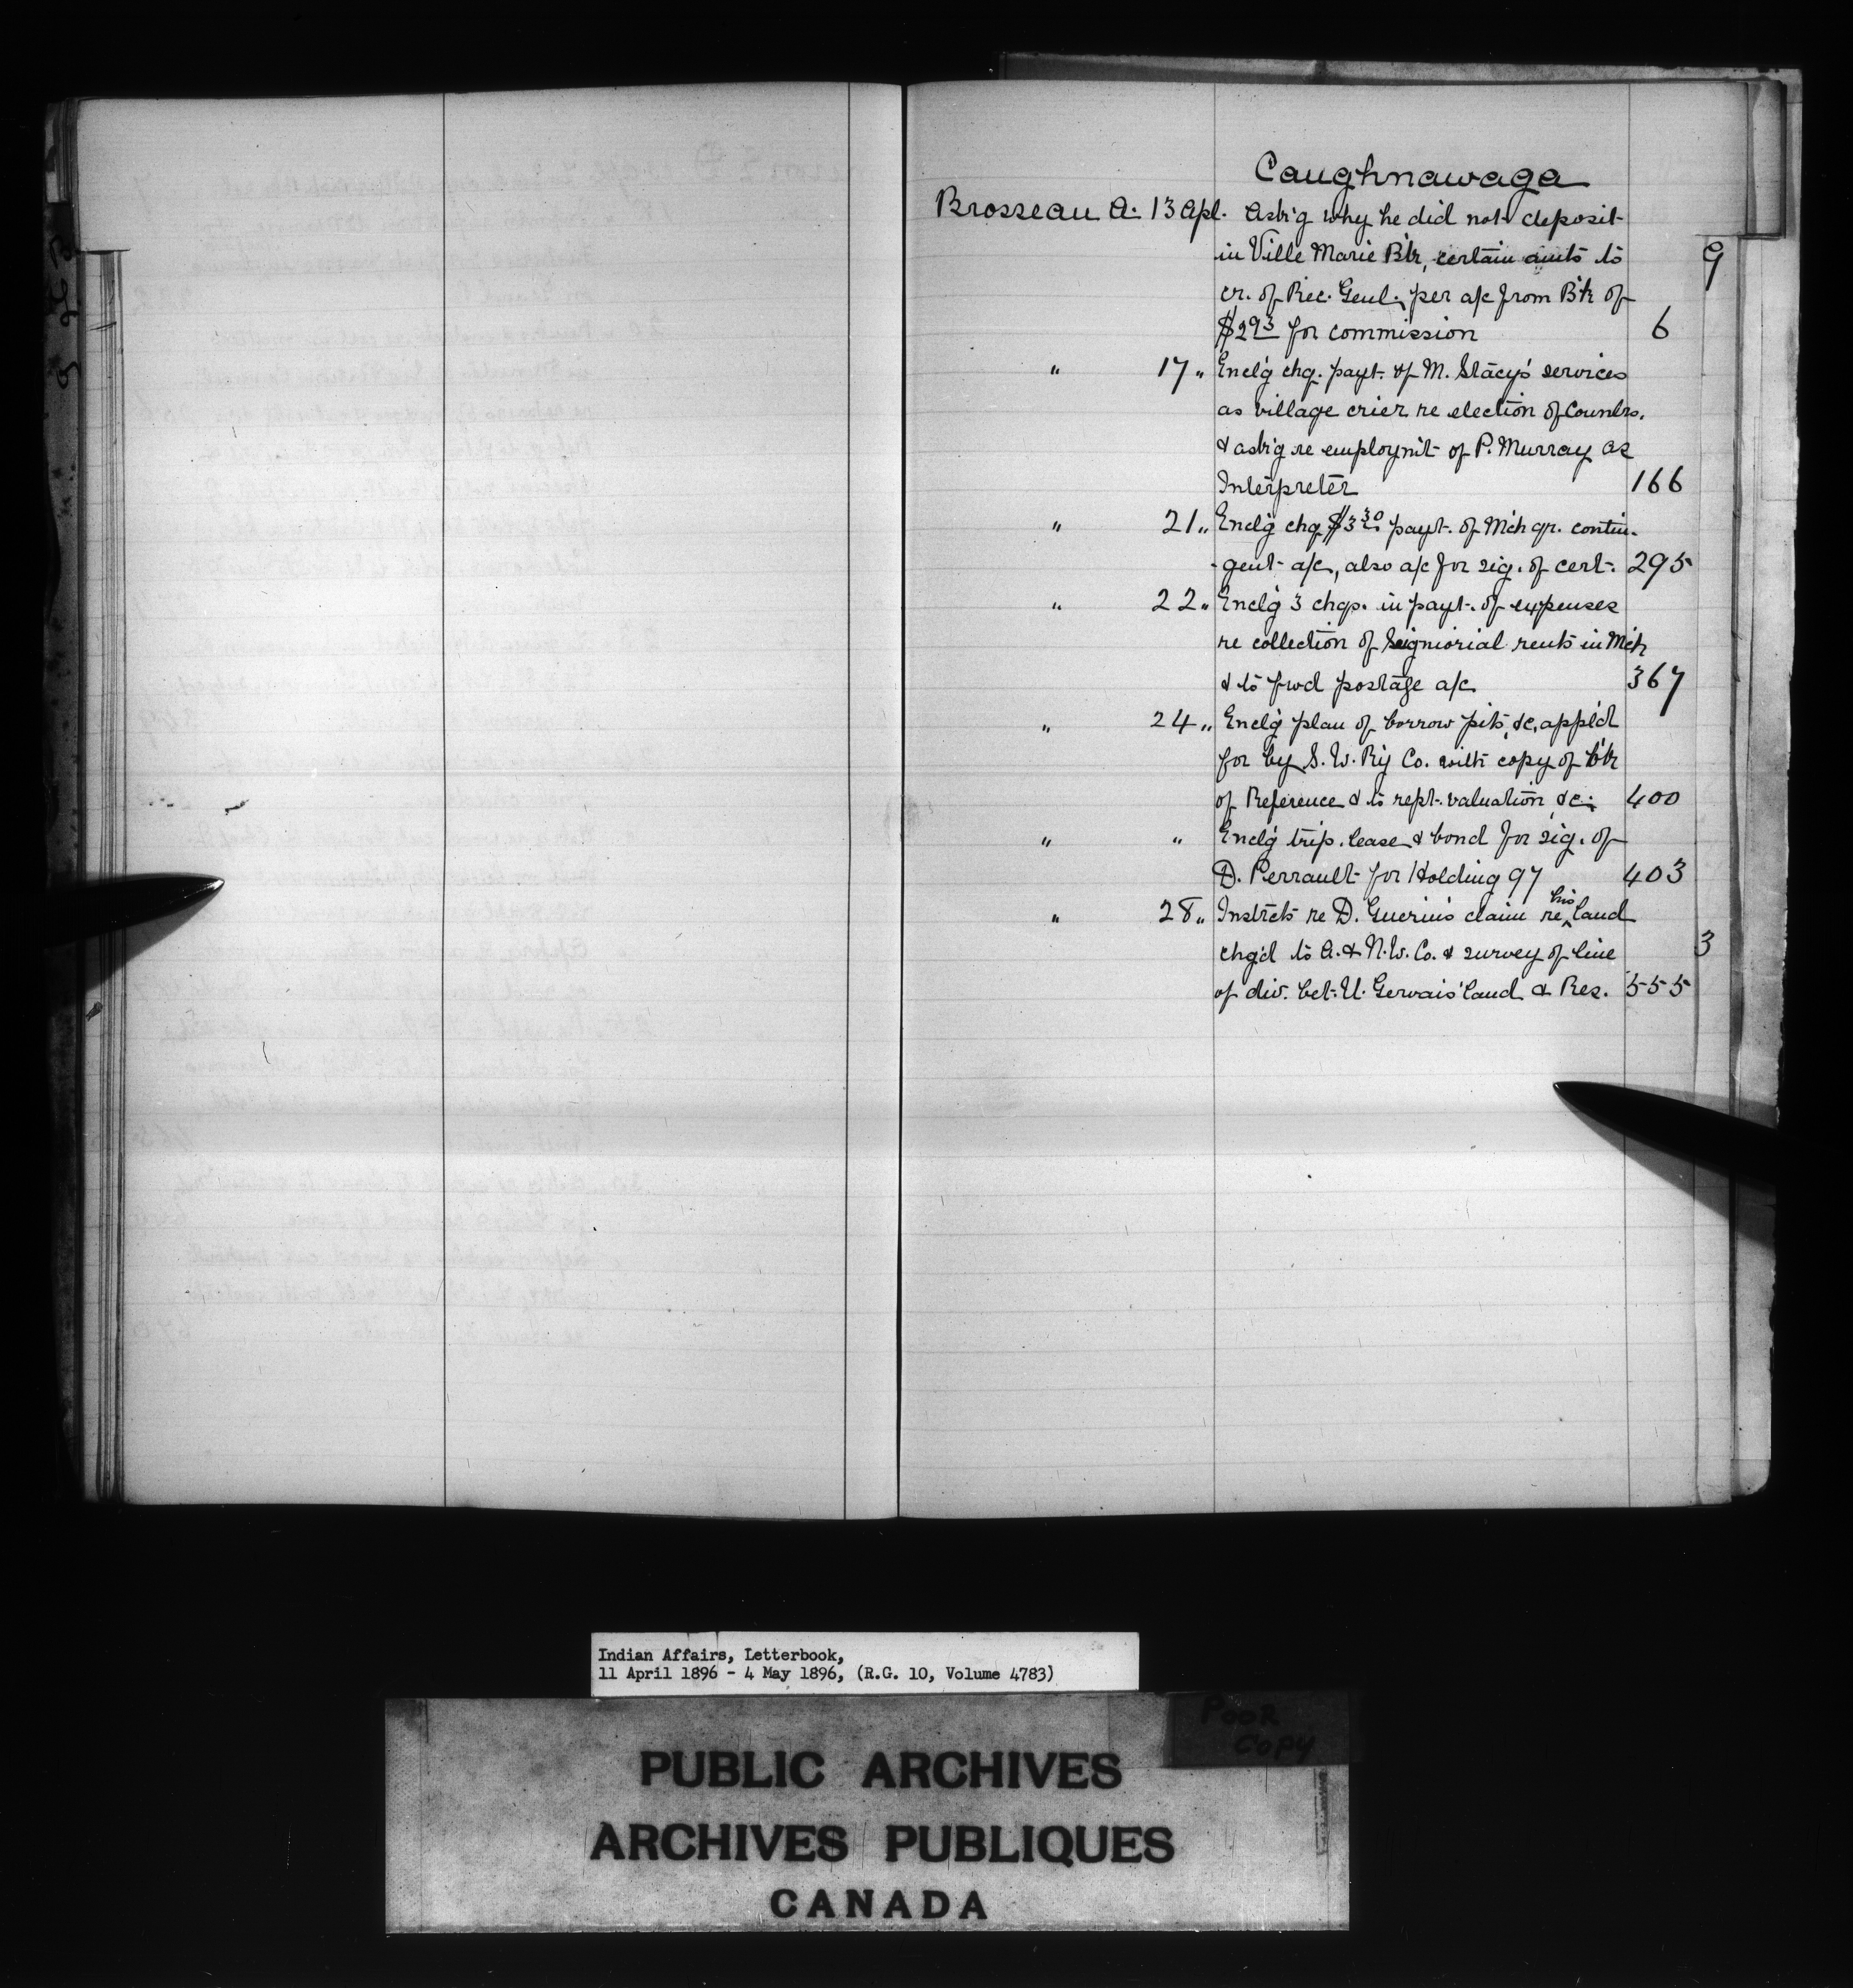 Caughnawaga
Brosseau A. 13 Apl. Ask'g why he did not deposit
in Ville Marie B'k, certain am'ts to
cr. of Rec. Genl. per a/c from B'k of
$2 93 for commission 6
" 17 " Encl'g chq. payt. of M. Stacy's services
as village crier re election of Counlrs.
& ask'g re employm't of P. Murray as
Interpreter 166
" 21 " Encl'g chq $3 30 payt. of Mch qr. contin-
-gent a/c, also a/c for sig. of cert. 295
" 22 " Encl'g 3 chqs. in payt. of expenses
re collection of Seigniorial rents in Mch
& to fwd postage a/c 367
" 24 " Encl'g plan of borrow pits, &c, app'd
for by S. W. R'y Co. with copy of b'k
of Reference & to rept. valuation &c. 400
" " Encl'g trip. lease & bond for sig. of
D. Perrault for Holding 97 403
" 28 " Instrcts re D. Guerin's claim re his land
chg'd to A. & N. W. Co. & survey of line
of div. bet. U. Gervais' land & Res. 555
9
3
Indian Affairs, Letterbook,
11 April 1896 - 4 May 1896, (R.G. 10, Volume 4783)
POOR
COPY
PUBLIC ARCHIVES
ARCHIVES PUBLIQUES
CANADA